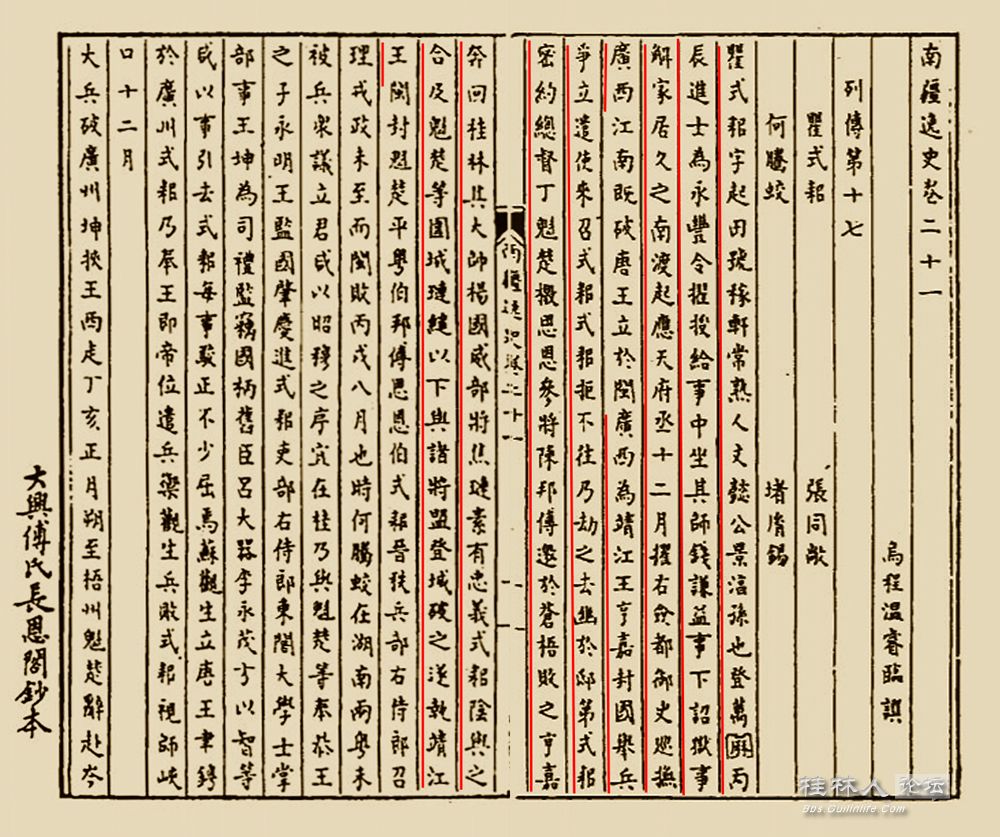 南疆逸史卷二十一
烏程溫睿臨譔
列傳第十七
瞿式耜 張同敞
何騰蛟 堵胤錫
瞿式耜字起田號稼軒常熟人文懿公景淳孫也登萬曆丙
辰進士為永豐令擢授給事中坐其師錢謙益事下詔獄事
解家居久之南渡起應天府丞十二月擢右僉都御史廵撫
廣西江南既破唐王立於閩廣西為靖江王亨嘉封國舉兵
爭立遣使來召式耜式耜拒不往乃劫之去幽於邸第式耜
密約總督丁魁楚檄思恩參將陳邦傅邀於蒼梧敗之亨嘉
南疆逸史卷二十一
奔回桂林其大帥楊國威部將焦璉素有忠義式耜陰與之
合及魁楚等圍城璉縋以下與諸將盟登城破之遂執靖江
王閩封魁楚平粵伯邦傅思恩伯式耜晉秩兵部右侍郎召
理戎政未至而閩敗丙戌八月也時何騰蛟在湖南兩粵未
被兵衆議立君咸以昭穆之序宜在桂乃與魁楚等奉恭王
之子永明王監國肇慶進式耜吏部右侍郎東閣大學士掌
部事王坤為司禮監竊國柄舊臣呂大器李永茂方以智等
咸以事引去式耜每事敢正不少屈焉蘇觀生立唐王聿
於廣州式耜乃奉王即帝位遣兵禦觀生兵敗式耜視師峽
口十二月
大兵破廣州坤挾王西走丁亥正月朔至梧州魁楚辭赴岑
大興傅氏長恩閣鈔本
桂林人论坛
Bbs.Guilinlife.Com